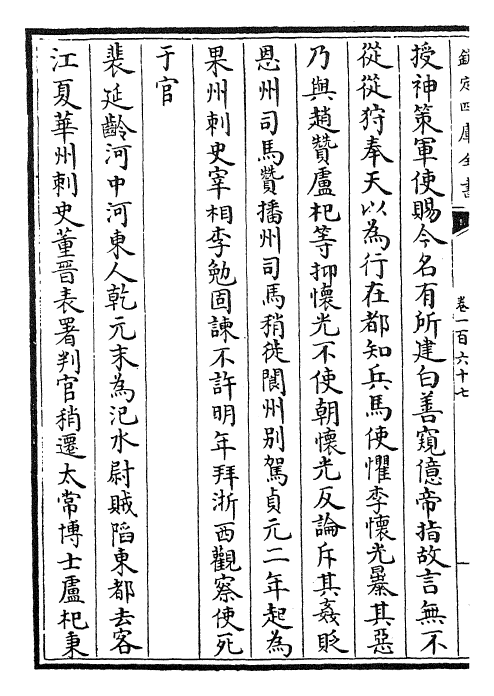 欽定四庫全書
卷一百六十七
授神策軍使賜今名有所建白善窺億帝指故言無不
從從狩奉天以為行在都知兵馬使懼李懷光㬥其惡
乃與趙贊盧杞等抑懷光不使朝懷光反論斥其姦貶
恩州司馬贊播州司馬稍徙閬州別駕貞元二年起為
果州刺史宰相李勉固諫不許明年拜浙西觀察使死
于官
裴延齡河中河東人乾元末為汜水尉賊陷東都去客
江夏華州刺史董晉表署判官稍遷太常博士盧杞秉